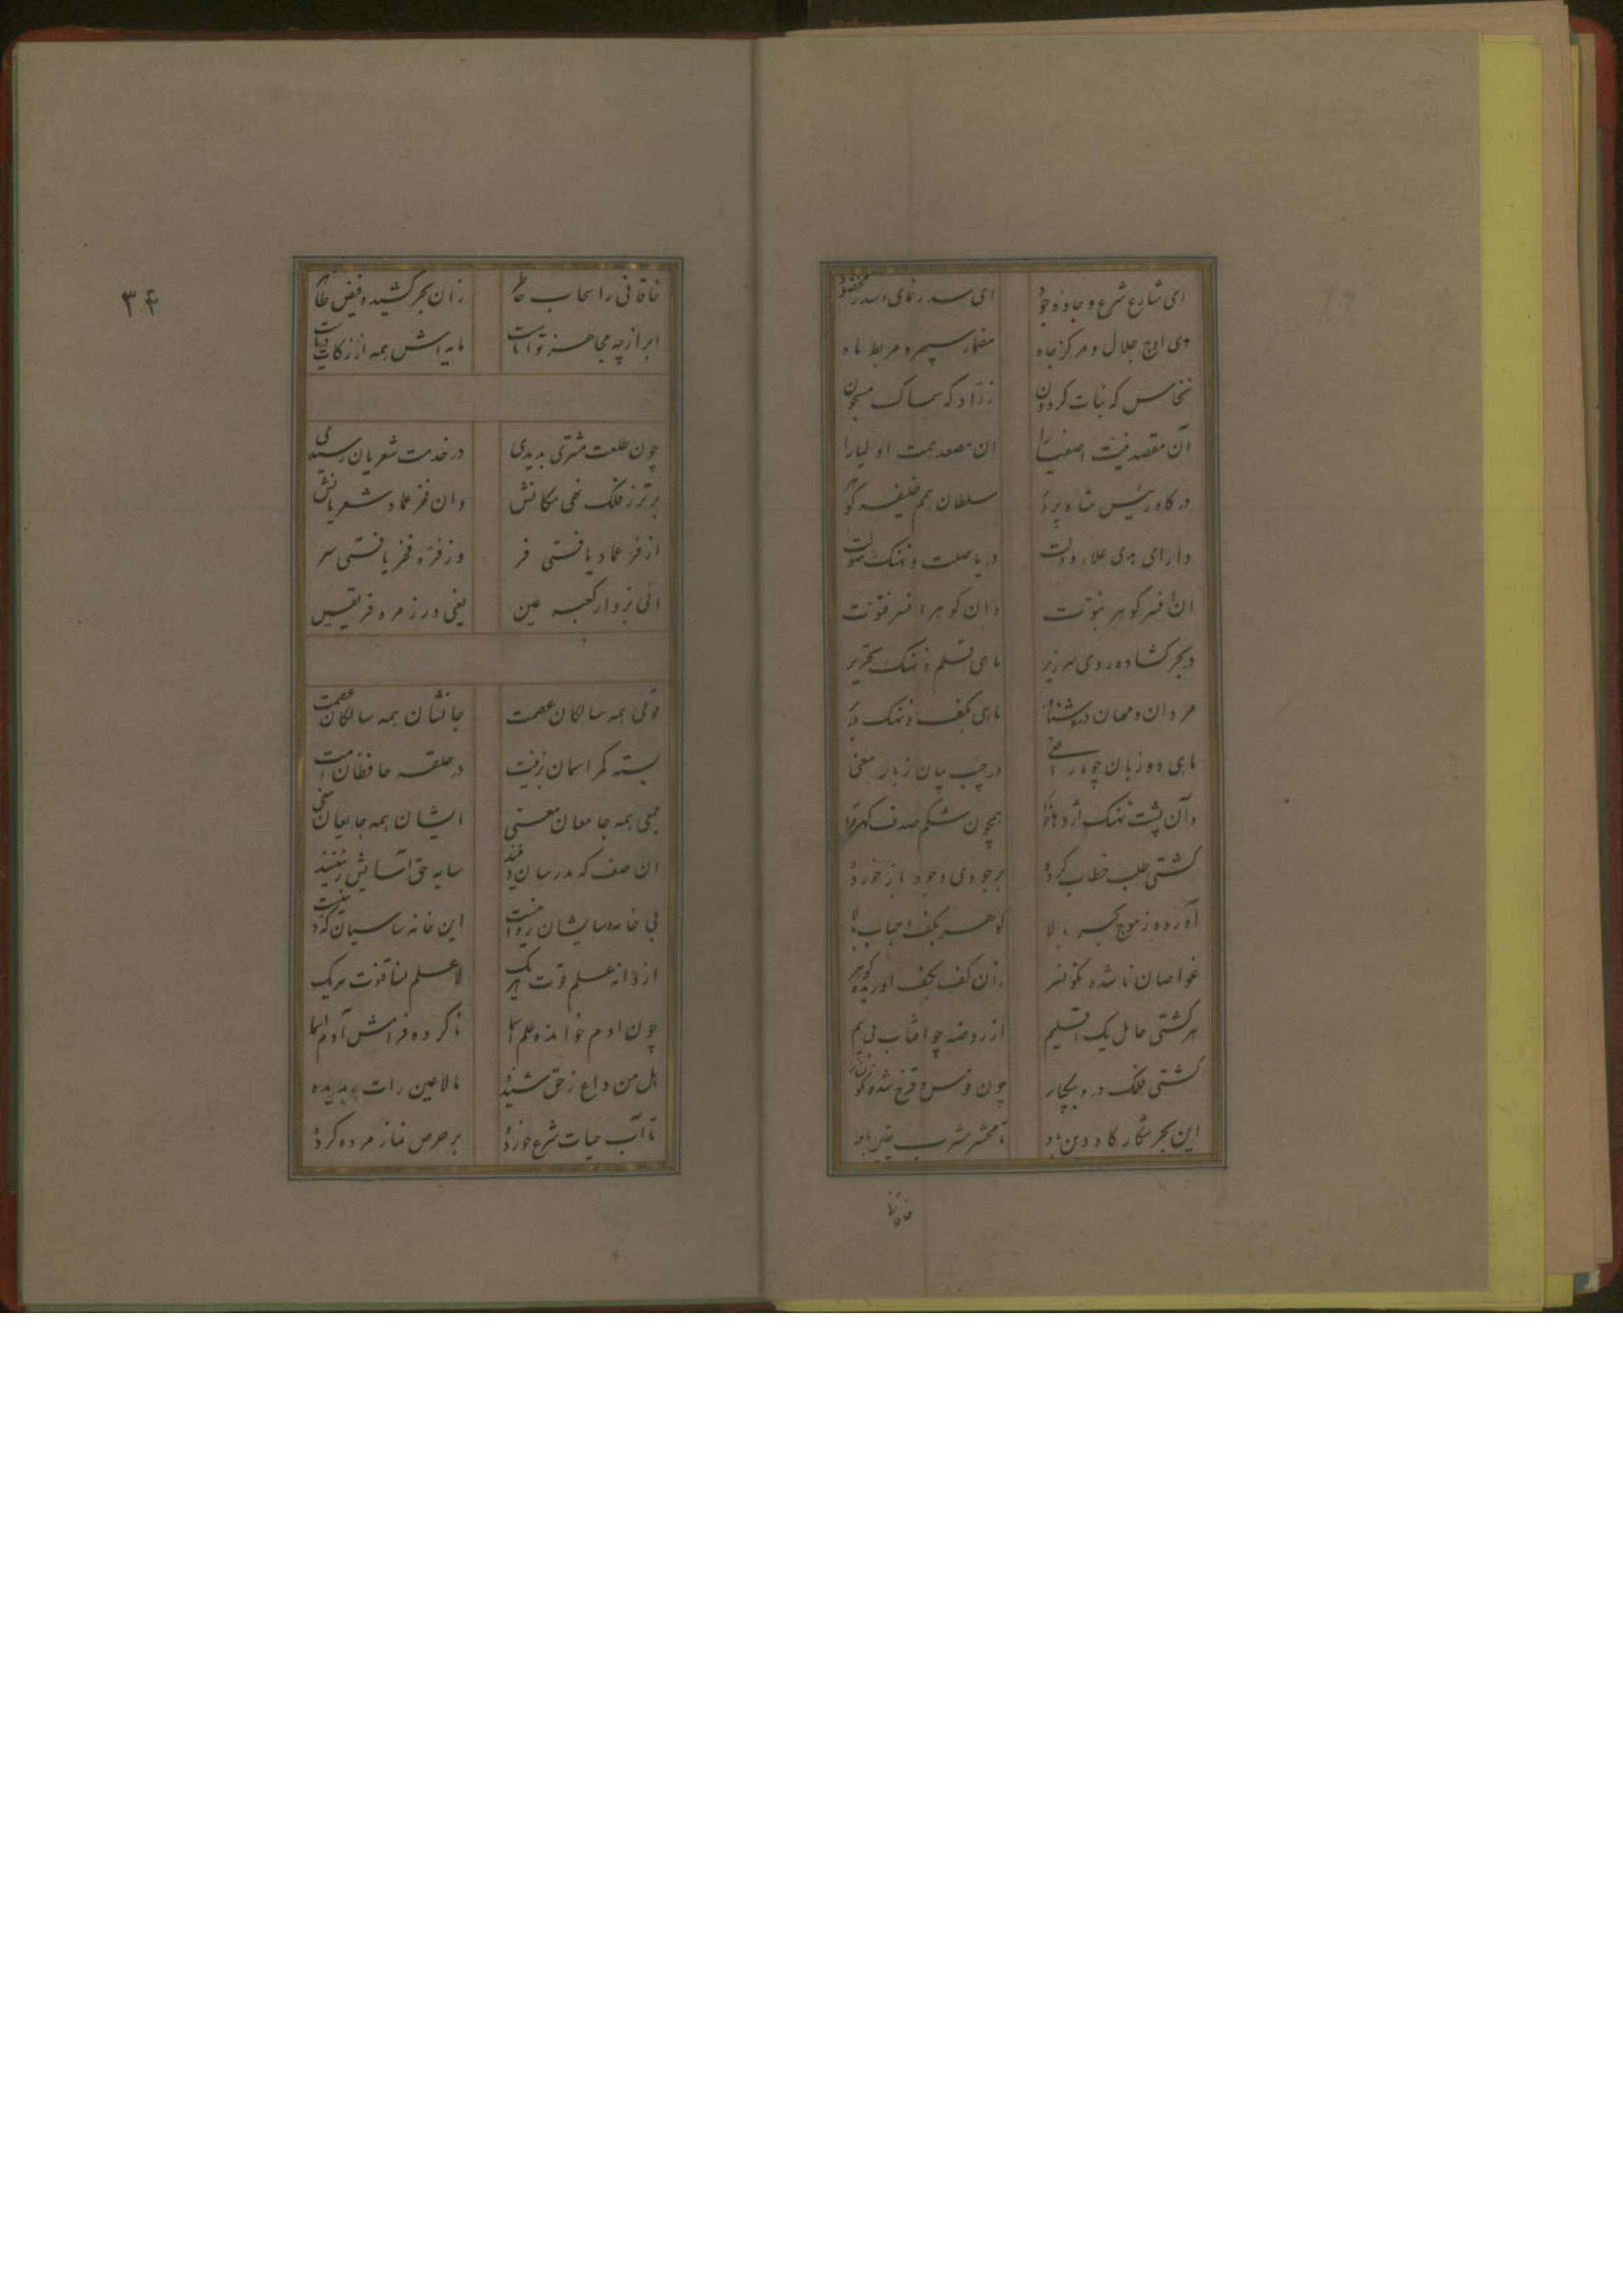 ای شارع شرع و جاده جود ای سدر نمای و سدر مخضود
وی اوج جلال و مرکز جاه مضمار سپهر و مربط ماه
نخاس که نبات کردون زراد که سماک مسجون
آن مقصد نیت اصفیا را ان مصعد همت اولیا را
درکاه رئیس شاه پرور سلطان همم خلیفه کوهر
دارای هدی علاء دولت دریا صلت و نهنک صولت
ان افسر کوهر نبوت وان کوهر افسر فتوت
دو بحر کشاده روی سرزیر ماهی قلم و نهنک تحریر
مردان و مهان در ماهی بکف و نهنک در
ماهی دو زبان چو مار در جیب بیان زبان معنی
وآن پشت نهنک اژدها همچون شکم صدف کهر
کشتی طلب خطاب کرده بر جودی وجود باز خورده
آورده ز موج بحر بالا کوهر بکف و حباب
غواصان ناشده نکونسر زان کف بکف اوریده کوهر
هر کشتی حامل یک اقلیم از روضه چو افتاب بی یم
کشتی فلک در و بیکبار چون قوس و قزح شده نکونسار
این بحر شکار کاه دین باد تا محشر مشرب یقین باد
خاقانی
۳۴
خاقانی را سحاب خاطر زان بحر کشیده فیض
ابر ازچه مجاهز نبات است مایه اش همه از زکات
چون طلعت مشتری بدیدی در خدمت شعریان رسیدی
برتر ز فلک نهی مکانش وان فخر عماد شعریانش
از فر عماد یافتی فر وز فره فخر یافتی سر
ائی بزوار کعبه عین یعنی در زمره فریقین
قومی همه سالکان عصمت جانشان همه سالکان عصمت
بسته کمر اسمان بزینت در حلقه حافظان
جمعی همه جامعان معنی ایشان همه جامعان معنی
ان صف که مدرسان سایه حق اسایش
بی خامه سایشان روا نیست این خانه ساسیان
از دانه علم قوت هر یک لا علم لنا قنوت هر یک
چون ادم خوانده علم اسما ناکرده فرامش آدم اسا
هل من داع ز حق شنیده ما لا عین رات بدیده
تا آب حیات شرع خورده بر حرص نماز مرده کرده